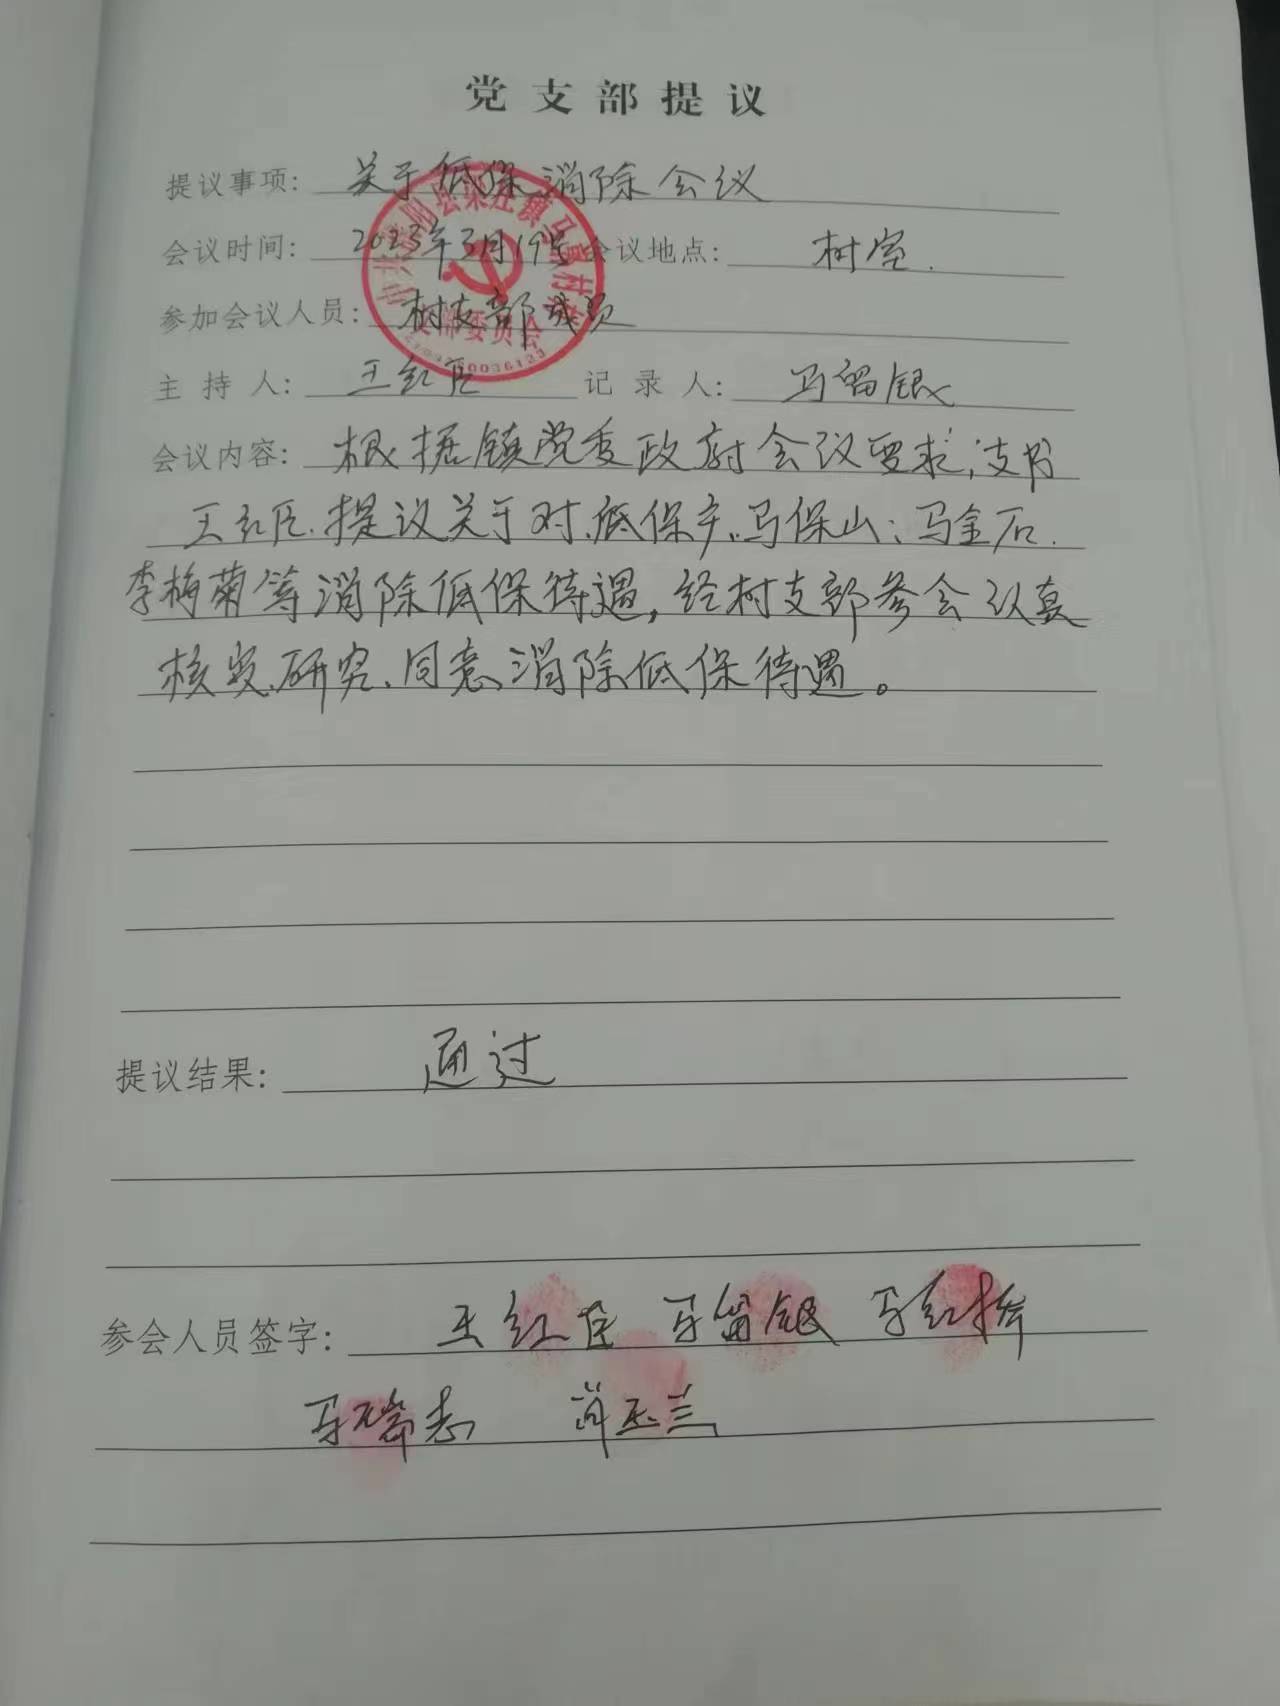 党支部提议
提议事项: 关于低保消除会议
会议时间: 2023年3月19号 会议地点: 村室.
参加会议人员: 村支部成员
主持人: 王红臣 记录人: 马留银
会议内容: 根据镇党委政府会议要求,支书
王红臣.提议关于对.低保户.马保山;马金石.
李梅菊等消除低保待遇,经村支部参会认真
核实.研究.同意消除低保待遇。
提议结果: 通过
参会人员签字: 王红臣 马留银 马红
马瑞志 肖玉兰
支部委员会